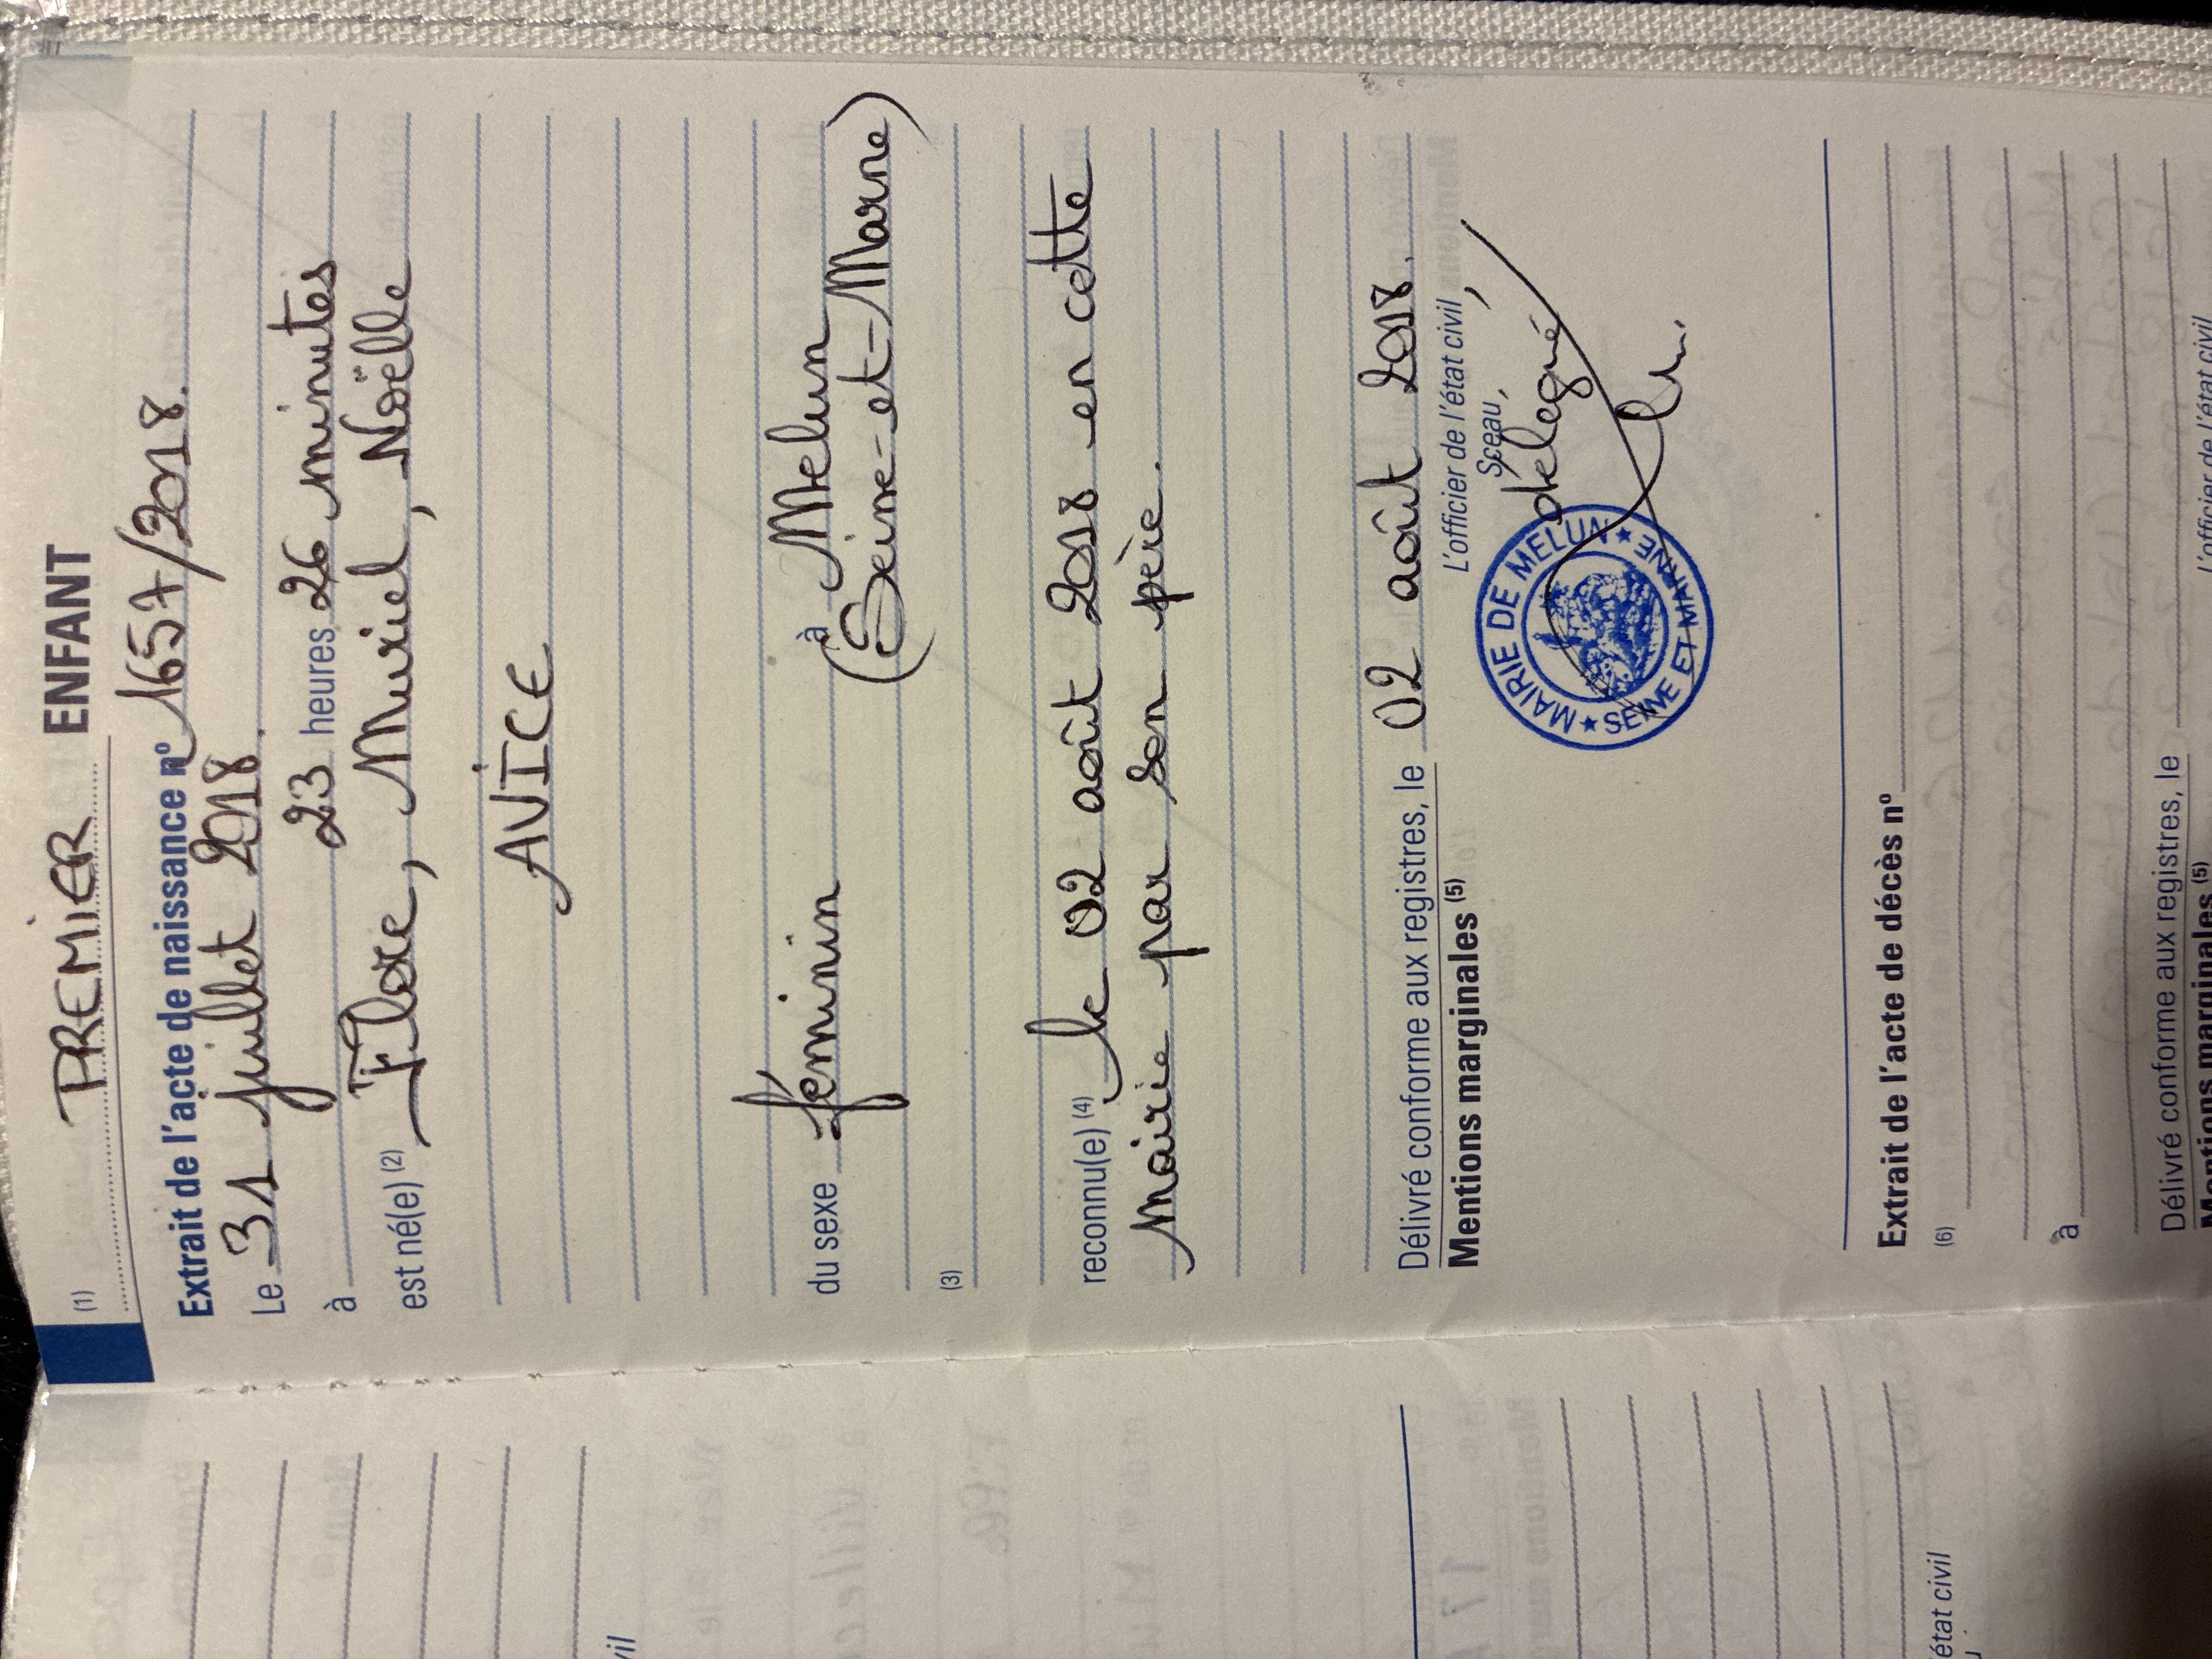 (1) PREMIER ENFANT
Extrait de l'acte de naissance nº 1657/2018.
Le 31 juillet 2018.
à 23 heures 26 minutes
est né(e) (2) Flore, Muriel, Noëlle
AVICE
du sexe féminin à Melun
(Seine-et-Marne)
(3)
reconnu(e) (4) le 02 août 2018 en cette
Mairie par son père.
Délivré conforme aux registres, le 02 août 2018.
Mentions marginales (5)
L'officier de l'état civil,
Sceau,
délégué
MAIRIE DE MELUN
SEINE ET MARNE
Extrait de l'acte de décès nº
(6)
à
Délivré conforme aux registres, le
Mentions marginales (5)
L'officier de l'état civil
vil
état civil